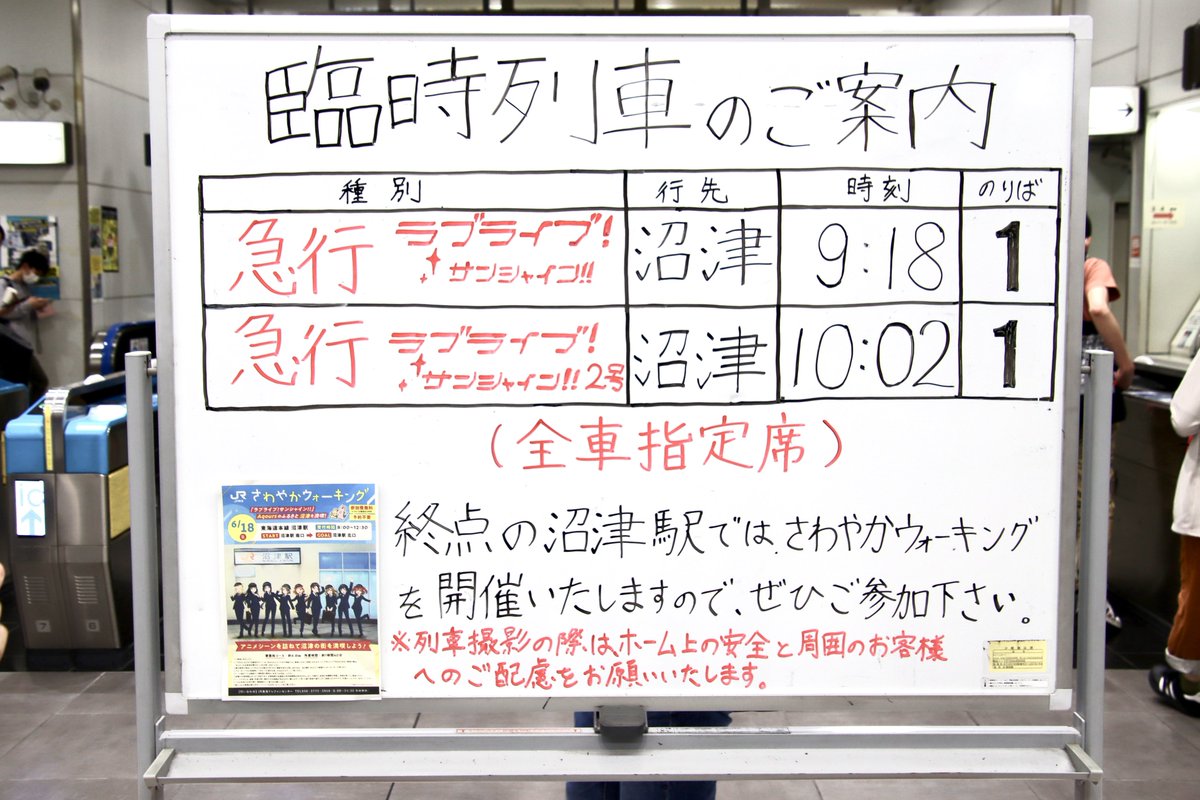 臨時列車のご案内
種別 行先 時刻 のりば
急行 ラブライブ! サンシャイン!! 沼津 9:18 1
急行 ラブライブ! サンシャイン!! 2号 沼津 10:02 1
(全車指定席)
終点の沼津駅では、さわやかウォーキング
を開催いたしますので、ぜひご参加下さい。
※列車撮影の際は、ホーム上の安全と周囲のお客様
へのご配慮をお願いいたします。
JR さわやかウォーキング
「ラブライブ!サンシャイン!!」
6/18
東海道本線 沼津駅
9:00~12:30
START 沼津駅 南口 GOAL 沼津駅 北口
沼津駅
アニメシーンを訪ねて沼津の街を満喫しよう!
IC
7 8